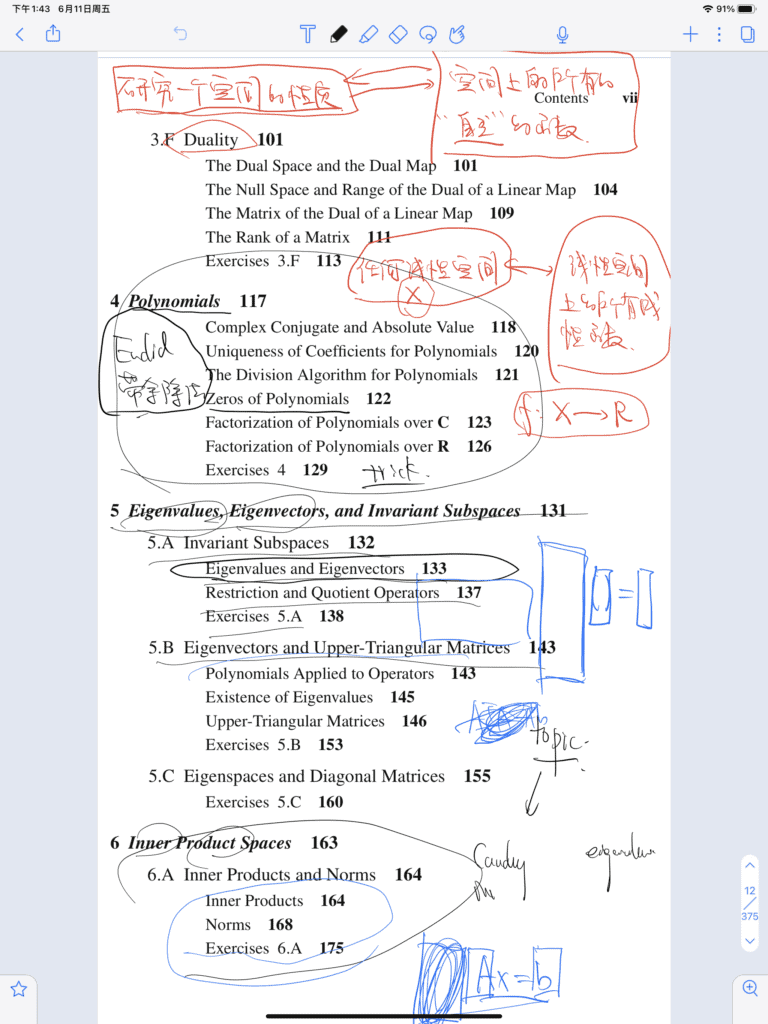 下午1:43 6月11日周五
91%
研究一个空间的性质
空间上的所有的
Contents vii
"自主"的函数
3.F Duality 101
The Dual Space and the Dual Map 101
The Null Space and Range of the Dual of a Linear Map 104
The Matrix of the Dual of a Linear Map 109
The Rank of a Matrix 111
Exercises 3.F 113
任何线性空间
X
线性空间
上的所有线
性函数.
4 Polynomials 117
Complex Conjugate and Absolute Value 118
Euclid
Uniqueness of Coefficients for Polynomials 120
The Division Algorithm for Polynomials 121
带余除法
Zeros of Polynomials 122
f: X → R
Factorization of Polynomials over C 123
Factorization of Polynomials over R 126
Exercises 4 129
trick.
5 Eigenvalues, Eigenvectors, and Invariant Subspaces 131
5.A Invariant Subspaces 132
Eigenvalues and Eigenvectors 133
Restriction and Quotient Operators 137
=
Exercises 5.A 138
5.B Eigenvectors and Upper-Triangular Matrices 143
Polynomials Applied to Operators 143
Existence of Eigenvalues 145
Upper-Triangular Matrices 146
topic.
Exercises 5.B 153
5.C Eigenspaces and Diagonal Matrices 155
Exercises 5.C 160
6 Inner Product Spaces 163
6.A Inner Products and Norms 164
Inner Products 164
Norms 168
Exercises 6.A 175
Ax=b
12
375